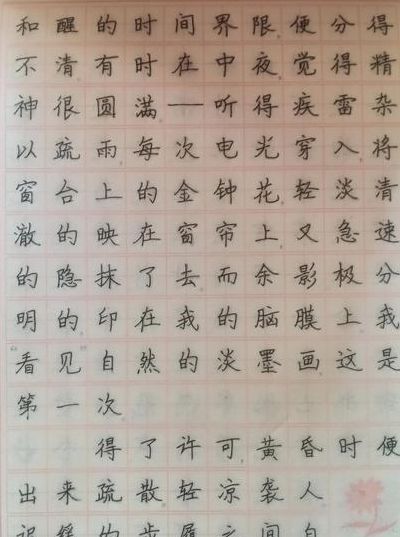 和醒的时间界限,便分得
不清有时在中夜,觉得精
神很圆满——听得疾雷杂
以疏雨,每次电光穿入,将
窗台上的金钟花,轻淡清
澈的映在窗帘上,又急速
的隐抹了去而余影极分
明的,印在我的脑膜上我
“看见”自然的淡墨画,这是
第一次
得了许可,黄昏时便
出来疏散轻凉袭人
的步履之间自